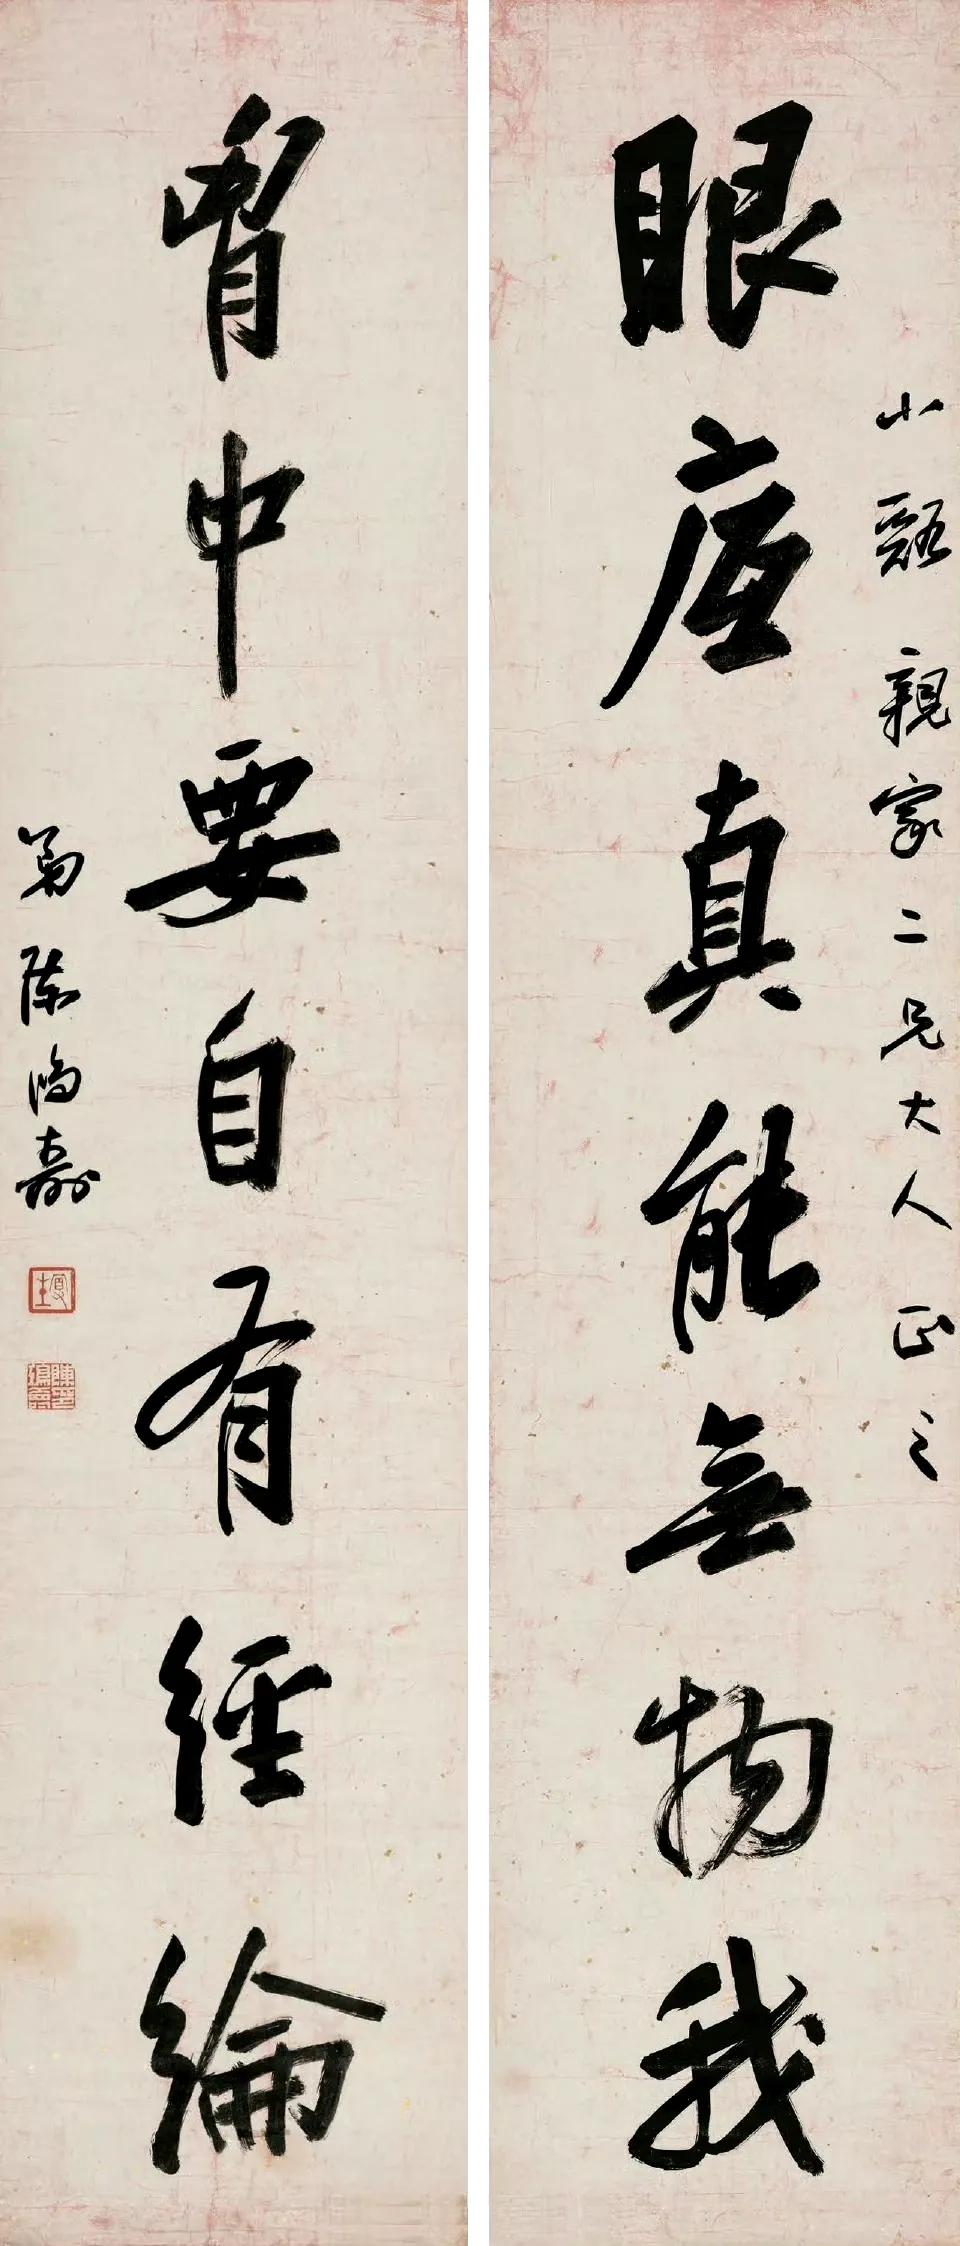 小谿親家二兄大人正之
眼底真能無物我
胷中要自有經綸
弟陳鴻壽
曼生